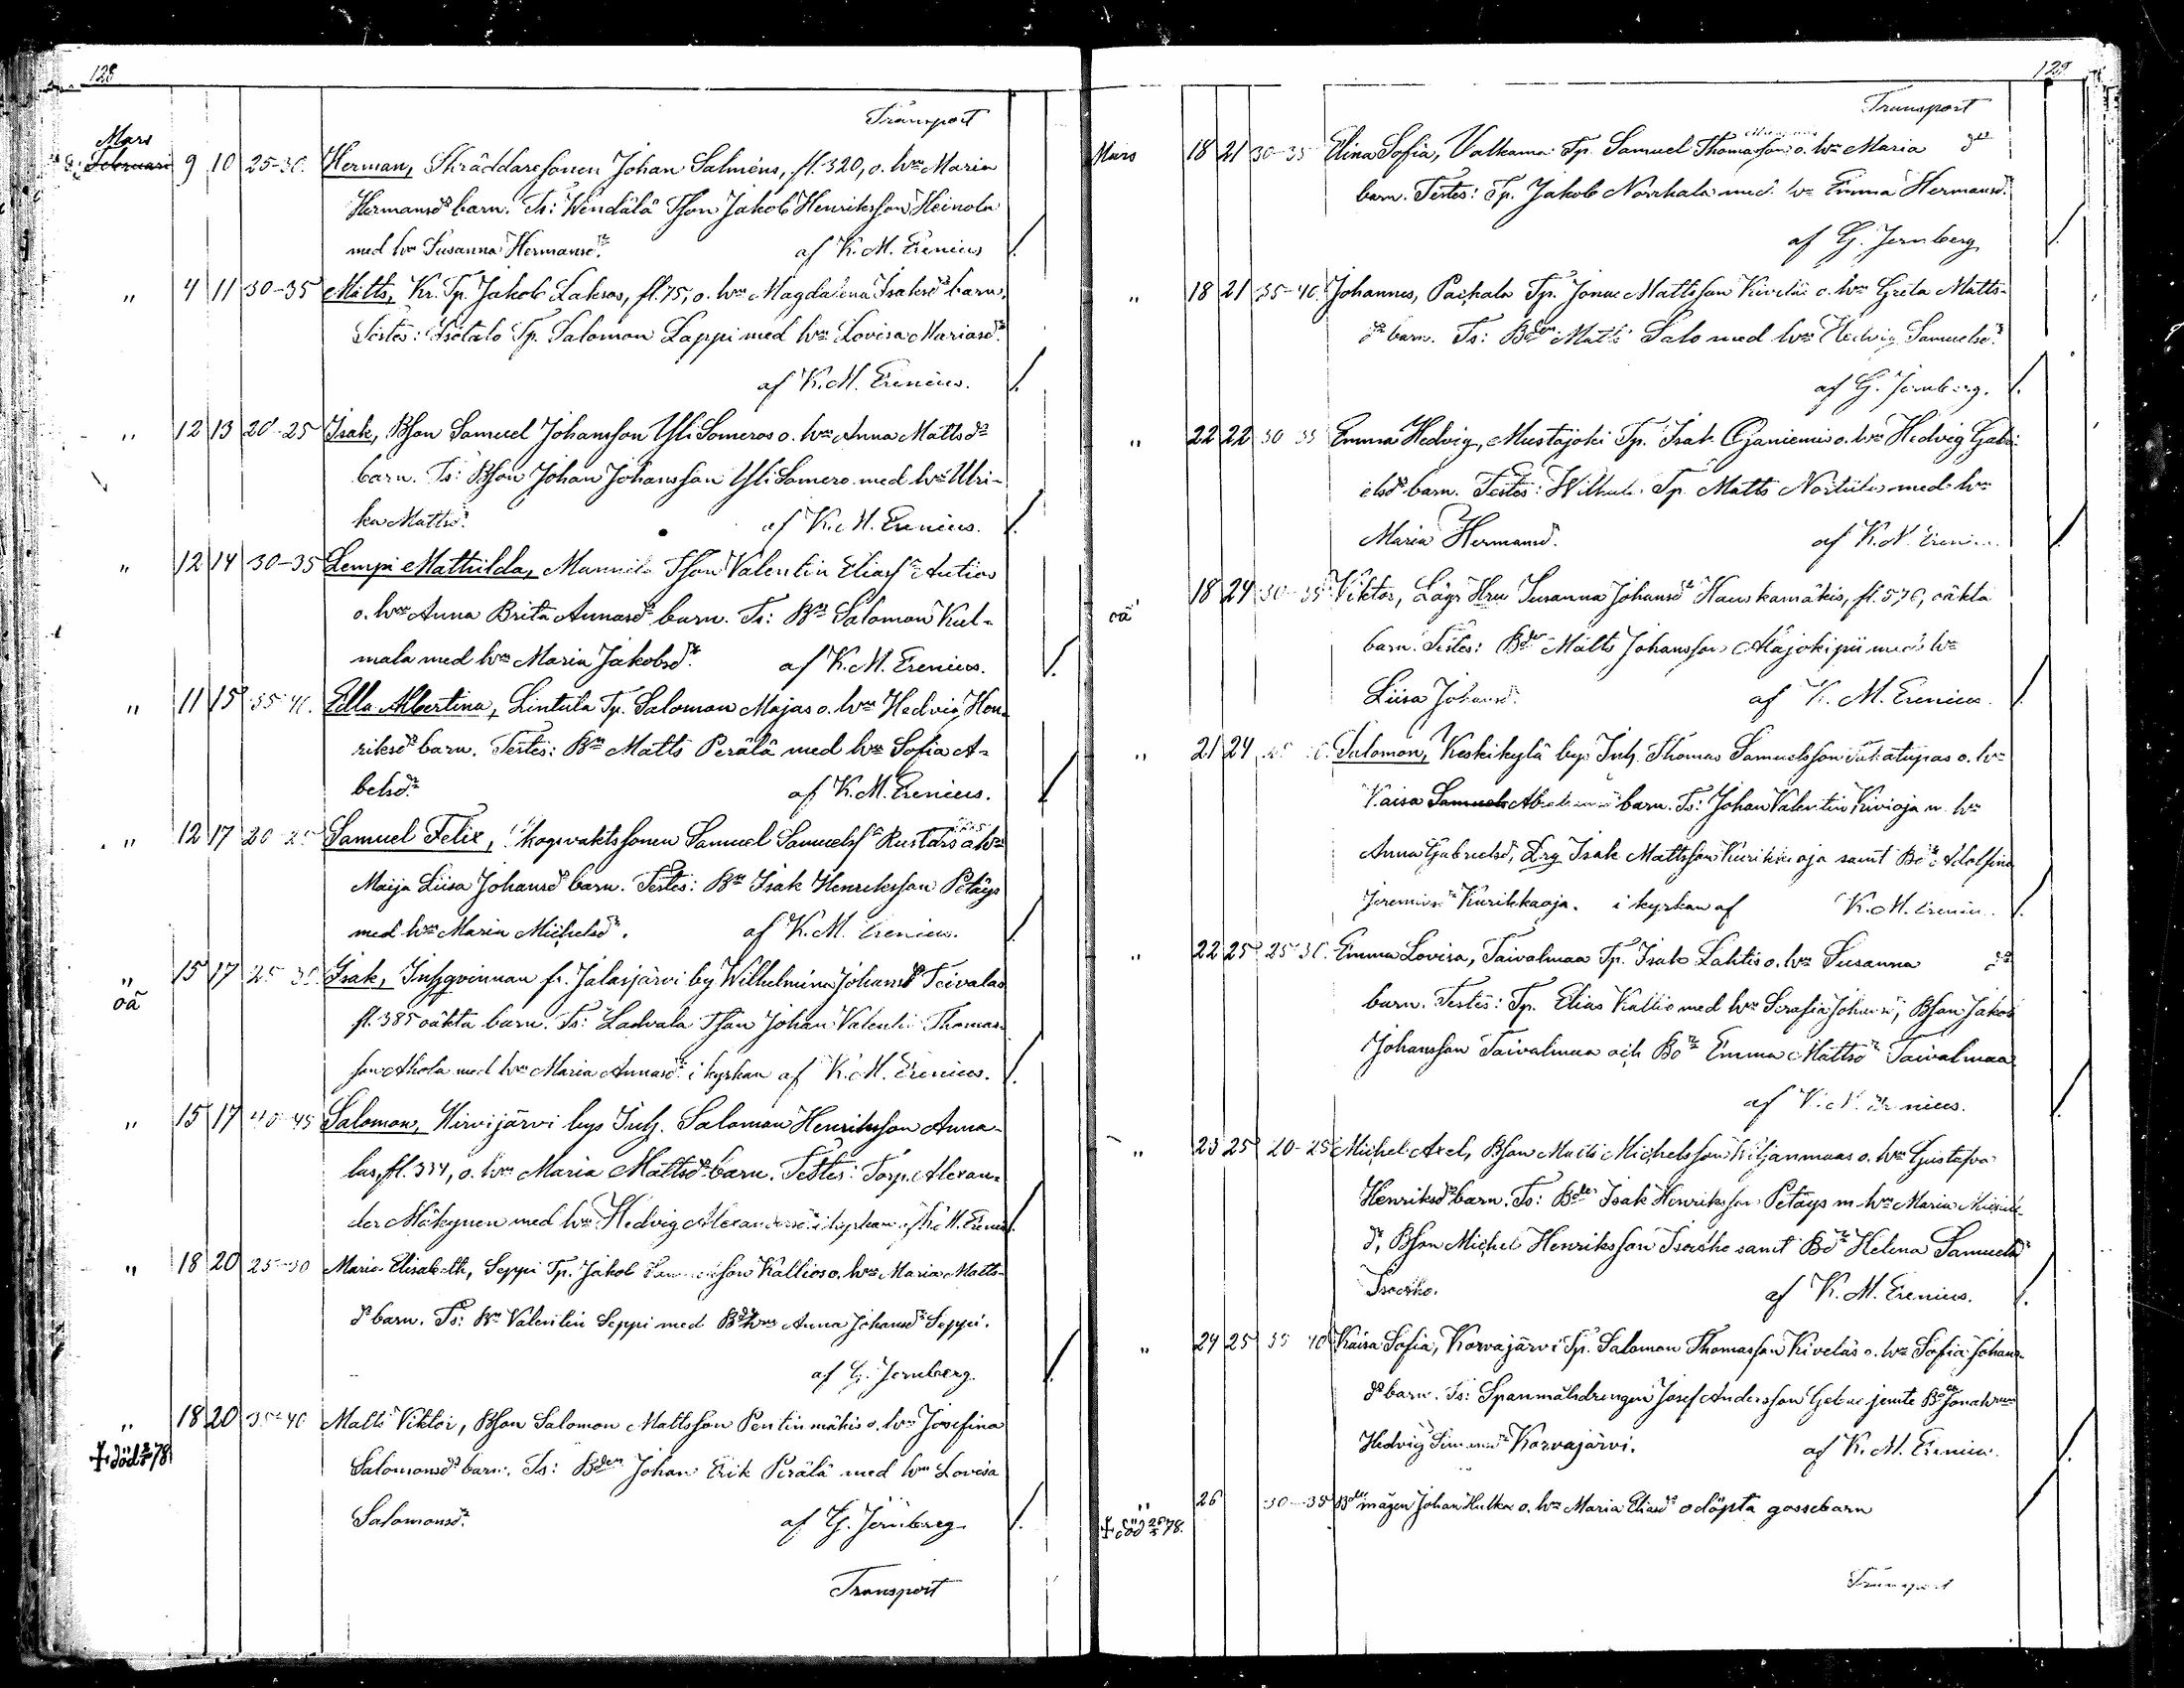 128
Transport
Mars
Februari 9 10 25-30. Herman, Skräddaresonen Johan Salméns, fl. 320, o. hm Maria
Hermansdr barn. Ts: Wendälä Tson Jakob Henriksson Heinola
med hm Susanna Hermansdr. af K. M. Erenius
" 4 11 30-35 Matts, Kr. Tp. Jakob Laksos, fl. 75, o. hm Magdalena Isaksdr barn.
Testes: Isotalo Tp. Salomon Lappi med hm Lovisa Mariasdr.
af K. M. Erenius.
" 12 13 20-25 Isak, Bson Samuel Johansson Yli Someros o. hm Anna Mattsdr
barn. Ts: Bson Johan Johansson Yli Somero med hm Ulri-
ka Mattsdr. af K. M. Erenius.
" 12 14 30-35 Lempi Mathilda, Mannila Tson Valentin Eliass Autios
o. hm Anna Brita Annasdr barn. Ts: Bn Salomon Kul-
mala med hm Maria Jakobsdr. af K. M. Erenius.
" 11 15 35-40. Ella Albertina, Lintula Tp. Salomon Majas o. hm Hedvig Hen-
riksdr barn. Testes: Bn Matts Perälä med hm Sofia A-
belsdr af K. M. Erenius.
" 12 17 20-25 Samuel Felix, Skogvaktssonen Samuel Samuelss Rustars o. hm
Maija Liisa Johansdr barn. Testes: Bn Isak Henriksson Petäys
med hm Maria Michelsdr. af K. M. Erenius.
" 15 17 25-30 Isak, Inhqvinnan fr. Jalasjärvi by Wilhelmina Johansdr Toivalas
oä fl. 385 oäkta barn. Ts: Ladvala Tson Johan Valentin Thomas-
son Ahola med hm Maria Annasdr i kyrkan af K. M. Erenius.
" 15 17 40-45 Salomon, Hirvijärvi bys Inh. Salomon Henriksson Anna-
las, fl. 334, o. hm Maria Mattsdr barn. Testes: Torp. Alexan-
der Mäkynen med hm Hedvig Alexandersdr i kyrkan af K. M. Erenius.
" 18 20 25-30 Maria Elisabeth, Seppi Tp. Jakob son Kallios o. hm Maria Matts-
dr barn. Ts: Bn Valentin Seppi med Bdhm Anna Johansdr Seppi.
af G. Jernberg.
" 18 20 35-40 Matts Viktor, Bson Salomon Mattsson Pentinmäkis o. hm Josefina
död 78 Salomonsdr barn. Ts: Bden Johan Erik Perälä med hm Lovisa
Salomonsdr. af G. Jernberg
Transport
129
Transport
Mars 18 21 30-35 Elina Sofia, Valkama Tp. Samuel Thomasson o. hm Maria dr
barn. Testes: Tp. Jakob Norrkala med hm Emma Hermansdr.
af G. Jernberg
" 18 21 35-40. Johannes, Paihala Tp. Jonas Mattsson Kiveläs o. hm Greta Matts-
dr barn. Ts: Bden Matts Salo med hm Hedvig Samuelsdr.
af G. Jernberg.
" 22 22 30 35 Emma Hedvig, Mustajoki Tp. Isak Ojaniemis o. hm Hedvig Gabri-
elsdr barn. Testes: Tp. Matts med hm
Maria Hermansd. af K. M. Erenius.
oä 18 24 30-35 Viktor, Lägr Hru Susanna Johansdr Hauskamäkis, fl. 576, oäkta
barn. Testes: Bder Matts Johansson Alajokipii med hm
Liisa Johansd. af K. M. Erenius.
" 21 24 Salomon, Keskikylä bys Inh. Thomas Samuelsson o. hm
Kaisa Samuels barn. Ts: Johan Valentin Kivioja m. hm
Anna Gabrielsd, Drg Isak Mattsson Kurikkaoja samt Bdr Adolfina
Jeremiasdr Kurikkaoja. i kyrkan af K. M. Erenius.
" 22 25 25-30. Emma Lovisa, Taivalmaa Tp. Isak Lahtis o. hm Susanna dr
barn. Testes: Tp. Elias Kallio med hm Serafia Johansd, Bson Jakob
Johansson Taivalmaa och Bdr Emma Mattsdr Taivalmaa
af K. M. Erenius.
" 23 25 20-25 Michel Axel, Bson Matts Michelsson Kiljanmaas o. hm Gustafva
Henriksdr barn. Ts: Bden Isak Henriksson Petäys m. hm Maria Michels-
dr, Bson Michel Henriksson Isosaho samt Bdr Helena Samuelsdr
af K. M. Erenius.
" 24 25 35 40 Kaisa Sofia, Korvajärvi Tp. Salomon Thomasson Kiveläs o. hm Sofia Johans-
dr barn. Ts: Spanmålsdrengen Josef Andersson jemte Bde Jonas hru
Hedvig Korvajärvi. af K. M. Erenius.
" 26 30-35 Bdemågen Johan Hulka o. hm Maria Eliasdr odöpta gossebarn
död 26/3 78.
Transport